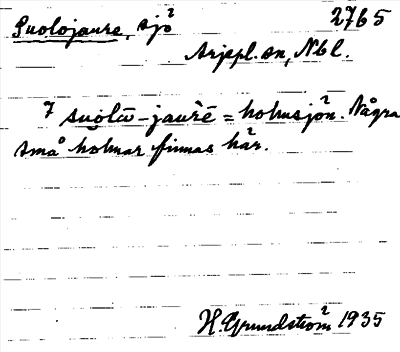 Suolojaure, sjö 2765
Arjepl. sn, Nbl.
7 suo̭lū-jaùrē = holmsjön. Några
små holmar finnas här.
H. Grundström 1935